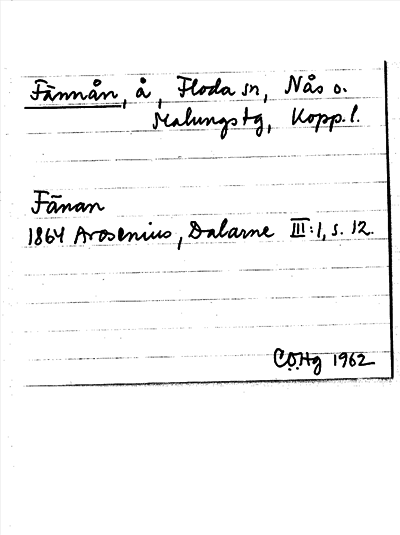 Fännån, å, Floda sn, Nås o.
Malungs tg, Kopp. l.
Fänan
1864 Arosenius, Dalarne III:1, s. 12.
C.O.Hg 1962